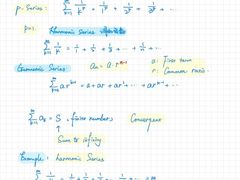 p-Series: ∑ 1/k^p = 1/1^p + 1/2^p + 1/3^p + ... + 1/n^p + ...
p=1. Harmonic Series
∑ 1/k = 1 + 1/2 + 1/3 + ... + 1/n + ...
Geometric Series: a_n = a·r^n-1 a: First term
r: Common ratio
∑ ar^k-1 = a + ar + ar² + ... + ar^n-1 + ...
∑ a_k = S, finite numbers Convergent
Sum to infinity
Example: harmonic Series